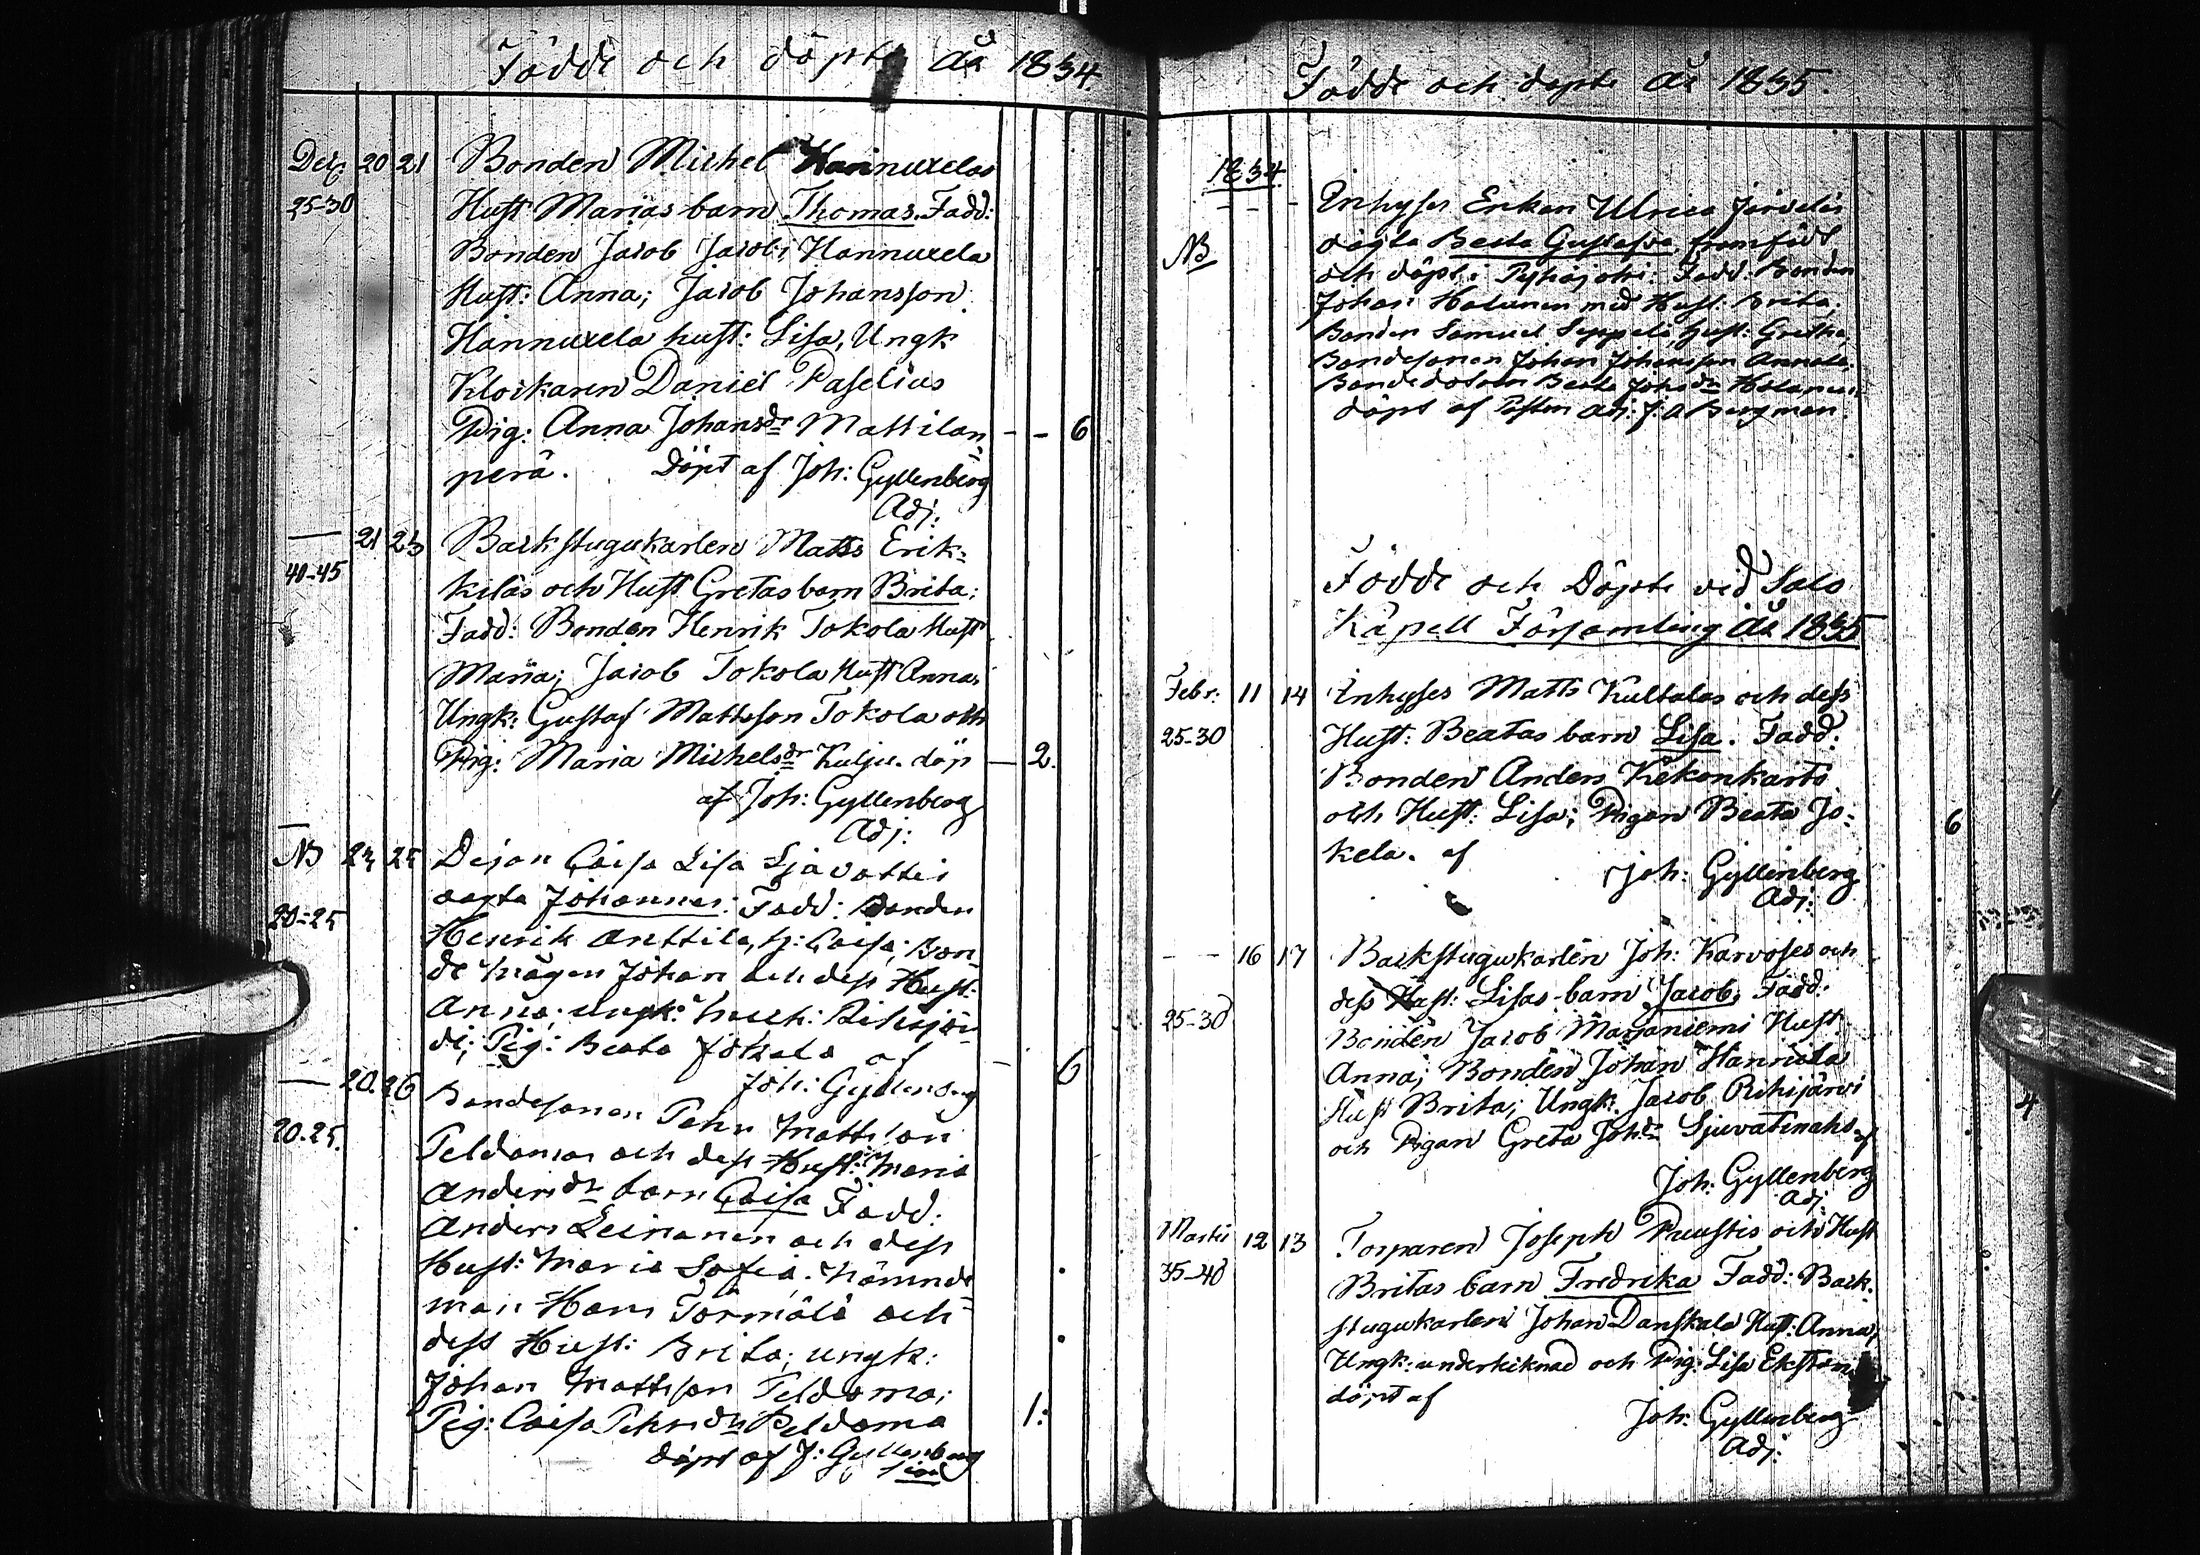 Födde och döpte År 1834
Dec. 20 21 Bonden Michel Hannuxelas
25-30 Hust Marias barn Thomas. Fadd:
Bonden Jacob Jacobs Hannuxela
Hust: Anna; Jacob Johansson
Hannuxela hust: Lisa, Ungk
Klockaren Daniel Paselius
Pig: Anna Johansdr Mattilan - - 6
perä. Döpt af Joh: Gyllenberg
Adj:
— 21 23 Backstugukarlen Matts Erik-
40-45 kiläs och Hust Gretas barn Brita:
Fadd: Bonden Henrik Tokola Hust
Maria; Jacob Tokola Hust Anna;
Ungk: Gustaf Mattsson Tokola och
Pig: Maria Michelsdr Kulju. döp — 2.
af Joh: Gyllenberg
Adj:
NB 23 25 Dejan Caisa Lisa
20-25 oägta Johannes: Fadd: Bonden
Henrik Anttila, h: Caisa; Bon-
de mågen Johan och dess Hust:
Anna; ungk: Mich: Rihijär-
di; Pig: Beata Jokela af — 6
Joh: Gyllenberg
— 20. 26 Bondesonen Pehr Mattsson
20-25. Peldomas och dess Hust: Maria
Andersdr barn Caisa Fadd:
Anders Leinonen och dess
Hust: Maria Sofia. Nämnde
man Hans Törmälä och
dess Hust: Brita; ungk:
Johan Mattsson Peldoma;
Pig: Caisa Pehrsdr Peldoma 1:
döpt af J: Gyllenberg
Födde och döpte År 1835.
1834
- - - Inhyses Enkan Ulrica Järvelis
NB oägta Beata Gustafva framfödt
och döpt i Pyhäjoki: Fadd: Bonden
Johan Halunen med Hust: Brita;
Bonden Samuel Seppelä, hust: Gretha,
Bondesonen Johan Johansson Annala
Bondedottern Beata Johsdr
döpt af Adj: J. A Bergman.
Födde och Döpte vid Salo
Kapell Församling År 1835
Febr. 11 14 Inhyses Matts Kultalas och dess
25-30 Hust: Beatas barn Lisa. Fadd:
Bonden Anders Kekonkarta
och Hust: Lisa; Pigan Beata Jo- 6
kela. af
Joh: Gyllenberg
Adj:
- - 16 17 Backstugukarlen Joh: Karvoses och
dess Hust: Lisas barn Jacob, Fadd:
25-30 Bonden Jacob Marjaniemi Hust.
Anna; Bonden Johan Hannila
Hust Brita; Ungk. Jacob Rihijärvi 4
och Pigan Greta Johdr Sjuvatinaho af
Joh: Gyllenberg
Adj:
Martii 12 13 Torparen Joseph Puustis och Hust
35-40 Britas barn Fredrika Fadd: Back-
stugukarlen Johan Danskala Hust: Anna;
Ungk: underteknad och Pig: Lisa Ekström
döpt af
Joh: Gyllenberg
Adj: